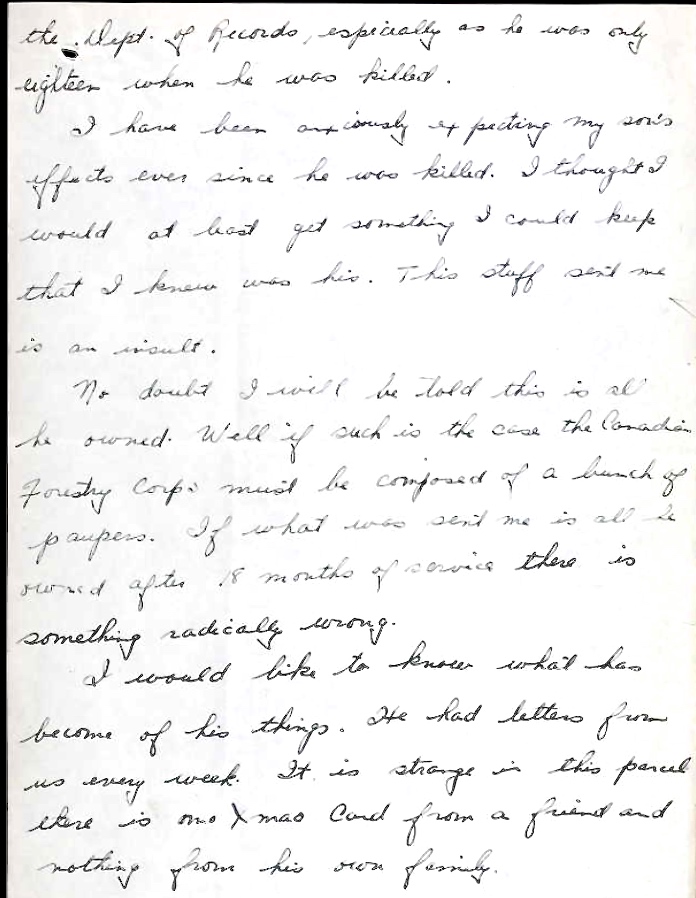 the Dept. of Records, especially as he was only
eighteen when he was killed.
I have been anxiously expecting my son's
effects ever since he was killed. I thought I
would at least get something I could keep
that I knew was his. This stuff sent me
is an insult.
No doubt I will be told this is all
he owned. Well if such is the case the Canadian
Forestry Corps must be composed of a bunch of
paupers. If what was sent me is all he
owned after 18 months of service there is
something radically wrong.
I would like to know what has
become of his things. He had letters from
us every week. It is strange in this parcel
there is one Xmas Card from a friend and
nothing from his own family.